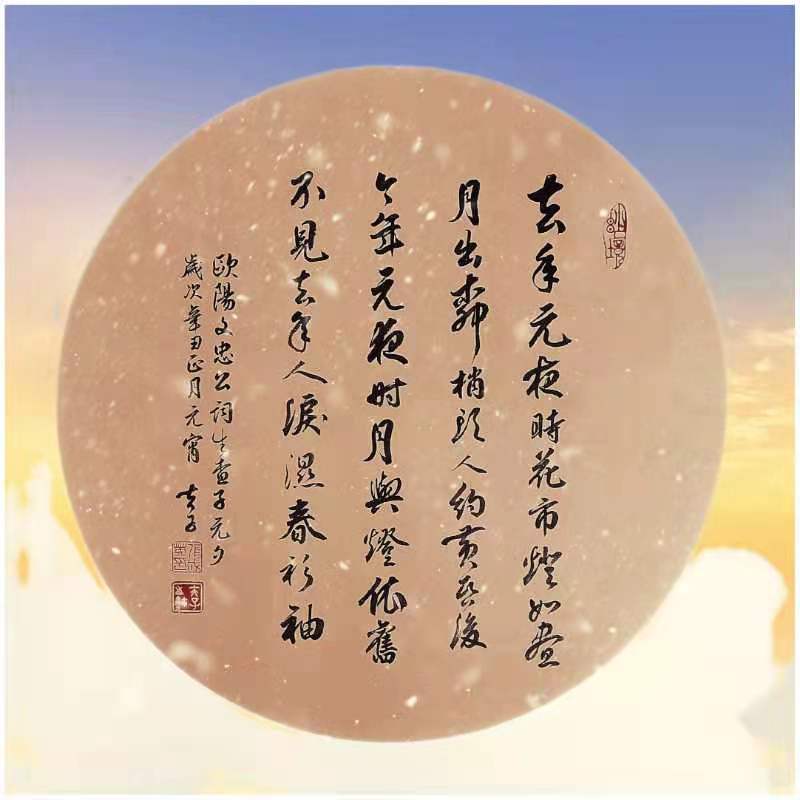 去年元夜時花市燈如晝
月出柳梢頭人約黃昏後
今年元夜时月與燈依舊
不見去年人淚濕春衫袖
歐陽文忠公詞生查子元夕
歲次辛丑正月元宵